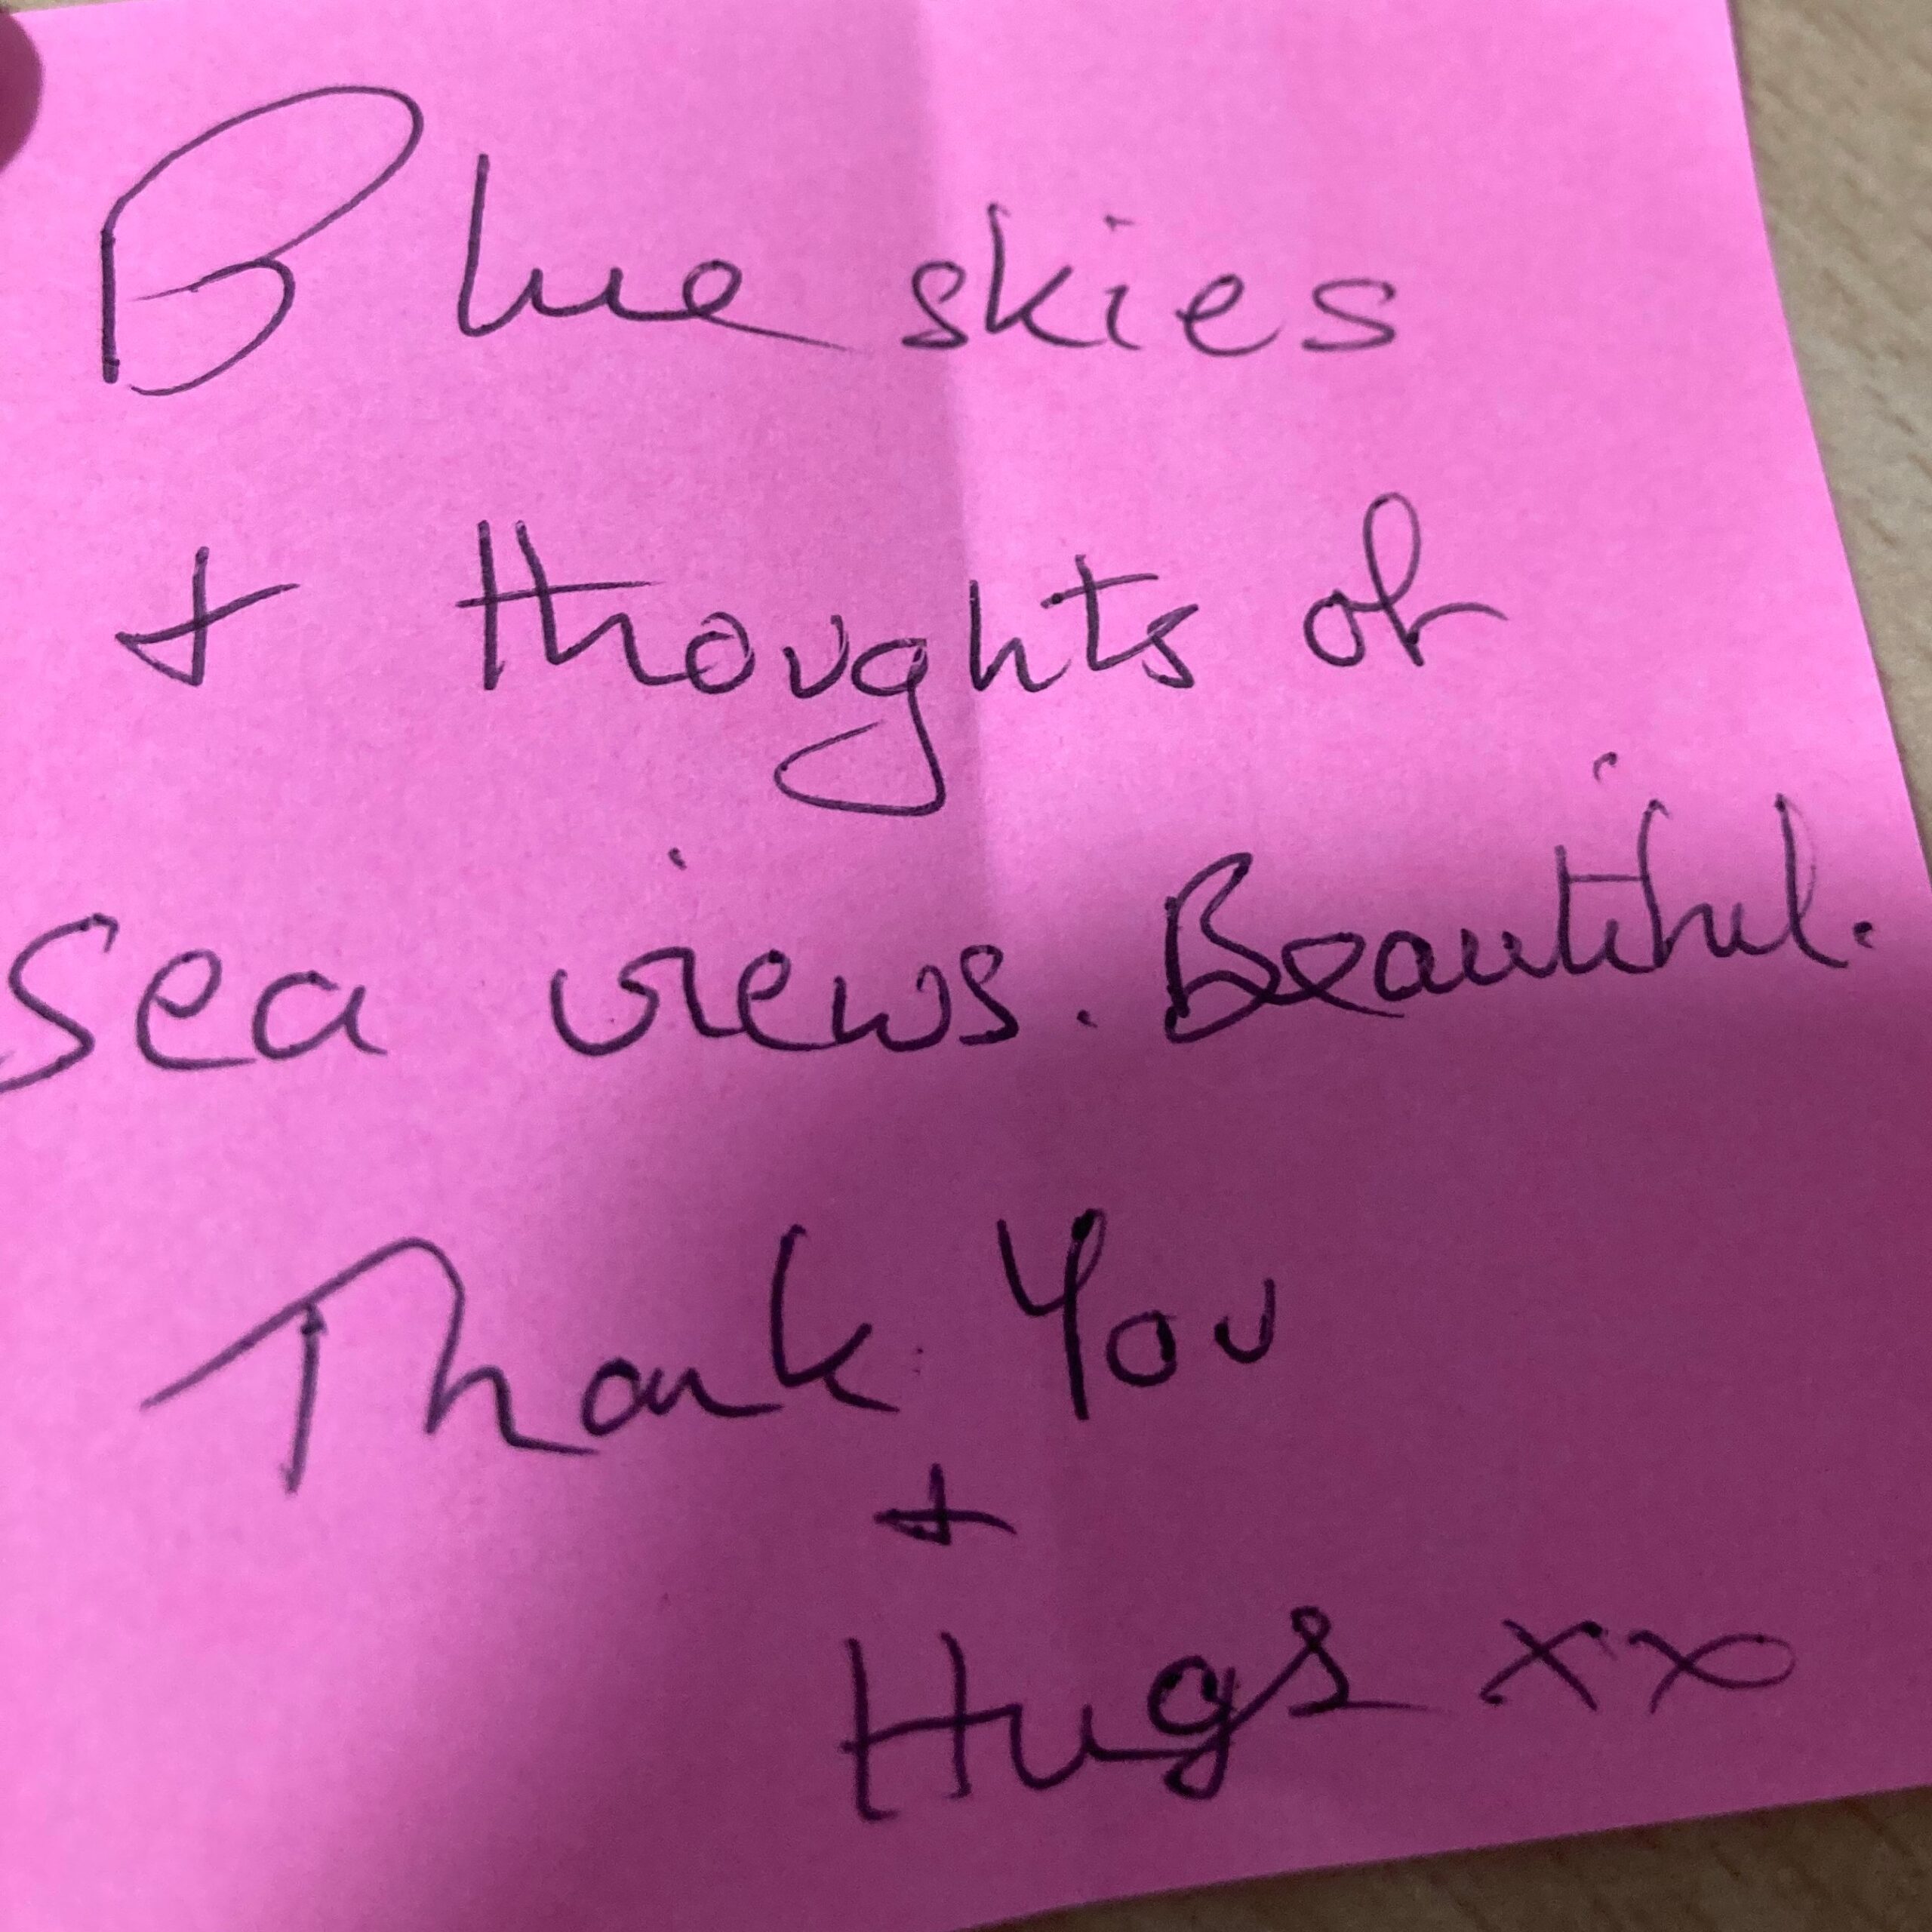 Blue skies
+ thoughts of
Sea views. Beautiful.
Thank You
+
Hugs xx